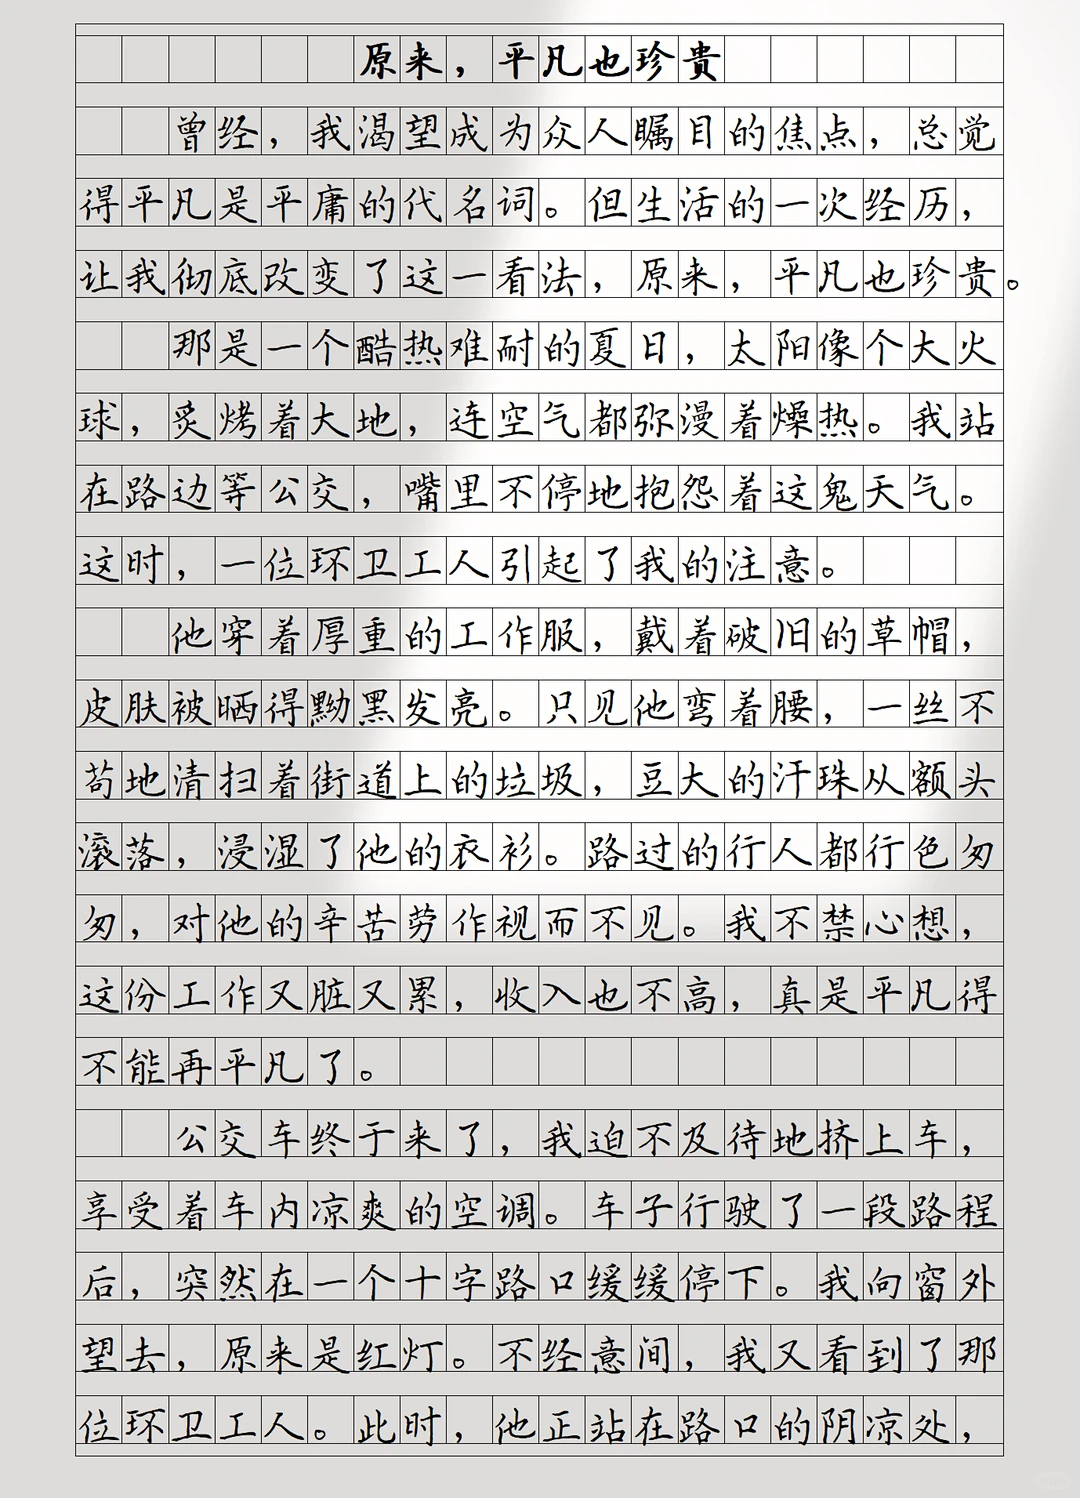 原来，平凡也珍贵
曾经，我渴望成为众人瞩目的焦点，总觉
得平凡是平庸的代名词。但生活的一次经历，
让我彻底改变了这一看法，原来，平凡也珍贵。
那是一个酷热难耐的夏日，太阳像个大火
球，炙烤着大地，连空气都弥漫着燥热。我站
在路边等公交，嘴里不停地抱怨着这鬼天气。
这时，一位环卫工人引起了我的注意。
他穿着厚重的工作服，戴着破旧的草帽，
皮肤被晒得黝黑发亮。只见他弯着腰，一丝不
苟地清扫着街道上的垃圾，豆大的汗珠从额头
滚落，浸湿了他的衣衫。路过的行人都行色匆
匆，对他的辛苦劳作视而不见。我不禁心想，
这份工作又脏又累，收入也不高，真是平凡得
不能再平凡了。
公交车终于来了，我迫不及待地挤上车，
享受着车内凉爽的空调。车子行驶了一段路程
后，突然在一个十字路口缓缓停下。我向窗外
望去，原来是红灯。不经意间，我又看到了那
位环卫工人。此时，他正站在路口的阴凉处，